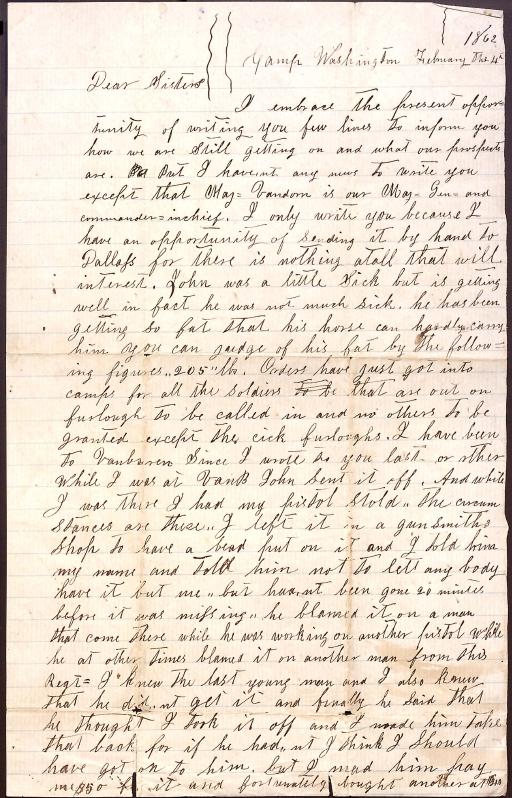 1862
Camp Washington February the 4th
Dear Sisters
I embrace the present oppor-
tunity of writing you few lines to inform you
how we are still getting on and what our prospects
are. But I have,nt any news to write you
except that Maj= Vandorn is our Maj- Gen- and
commander=inchief. I only write you because I
have an opportunity of sending it by hand to
Dallass for there is nothing atall that will
interest. John was a little Sick but is getting
well in fact he was not much sick. he has been
getting so fat that his horse can hardly carry
him you can judge of his fat by the follow=
ing figures,,205"lbs. Orders have just got into
camps for all the soldiers to be that are out on
furlough to be called in and no others to be
granted except the cick furloughs. I have been
to Vanburen Since I wrote to you last or rther
While I was at VanB John Sent it off. And while
I was there I had my pistol stold,, the circum
stances are these,, I left it in a gunsmiths
shop to have a bead put on it and I told him
my name and told him not to lett any body
have it but me,, but hav,nt been gone 20 minutes
before it was missing,, he blamed it on a man
that come there while he was working on another pistol while
he at other times blamed it on another man from this
Regt= I knew the last young man and I also knew
that he did,nt get it and finally he said that
he thought I took it off and I made him take
that back for if he had,nt I think I should
have got on to him. but I mad him pay
me $50 it and fortunately bought another at